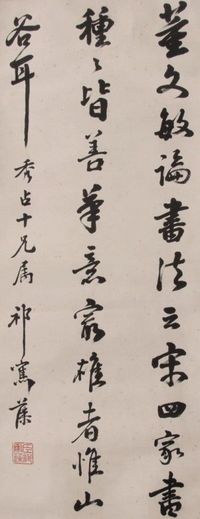 董文敏論書法云宋四家書
種〻皆善筆意最雄者惟山
谷耳
秀占十兄屬 祁寯藻